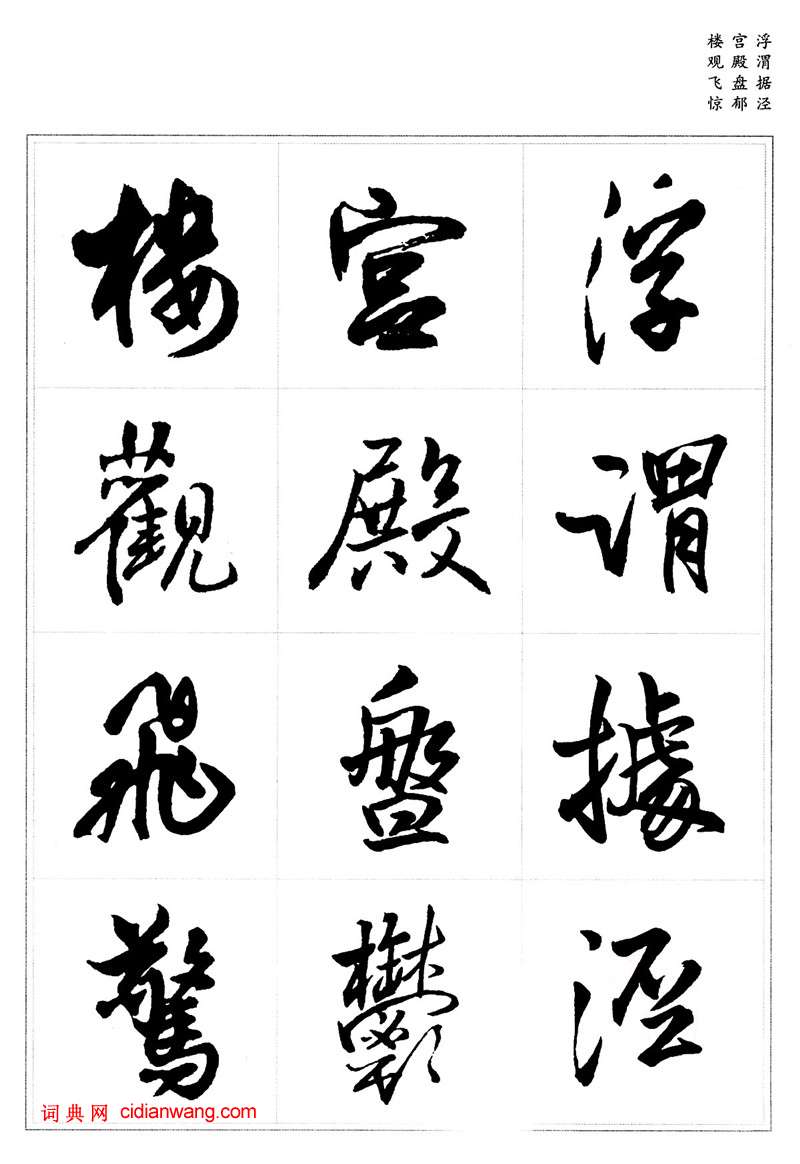 浮渭据泾
宫殿盘郁
楼观飞惊
浮謂據涇
宮殿盤鬱
樓觀飛驚
词典网 cidianwang.com